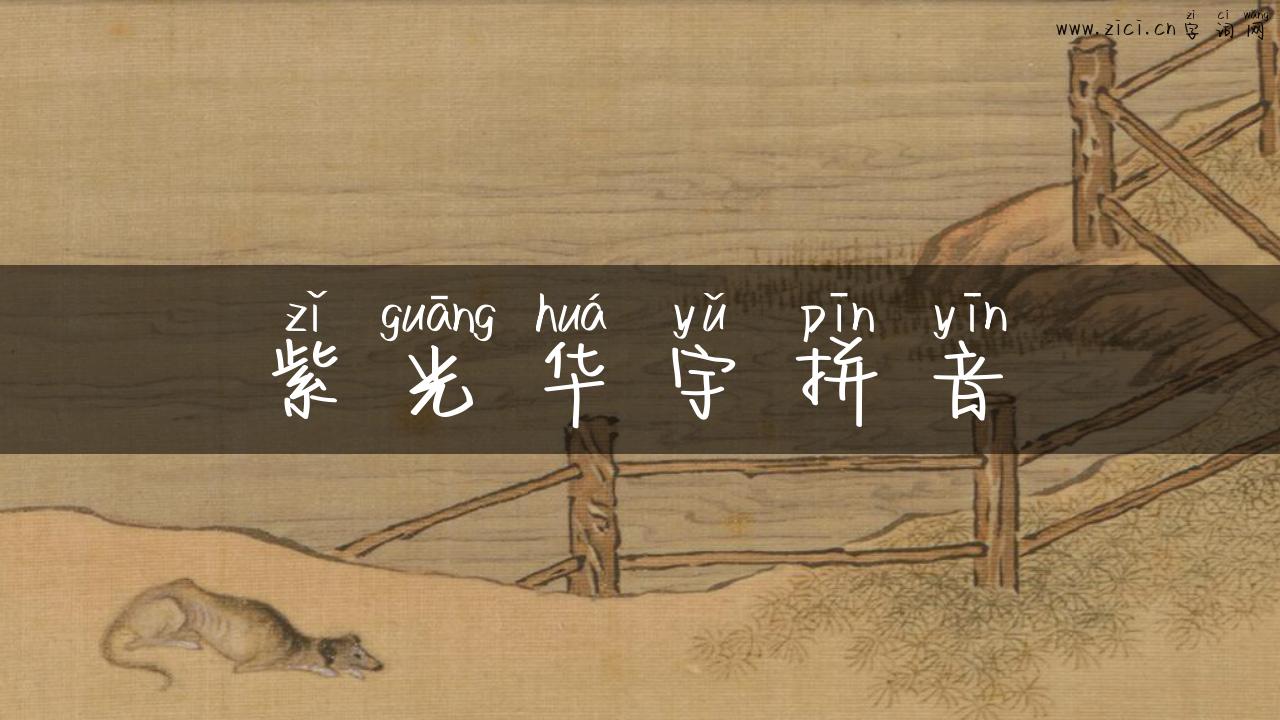 zì cí wǎng
www.zici.cn 字词网
zǐ guāng huá yǔ pīn yīn
紫光华宇拼音